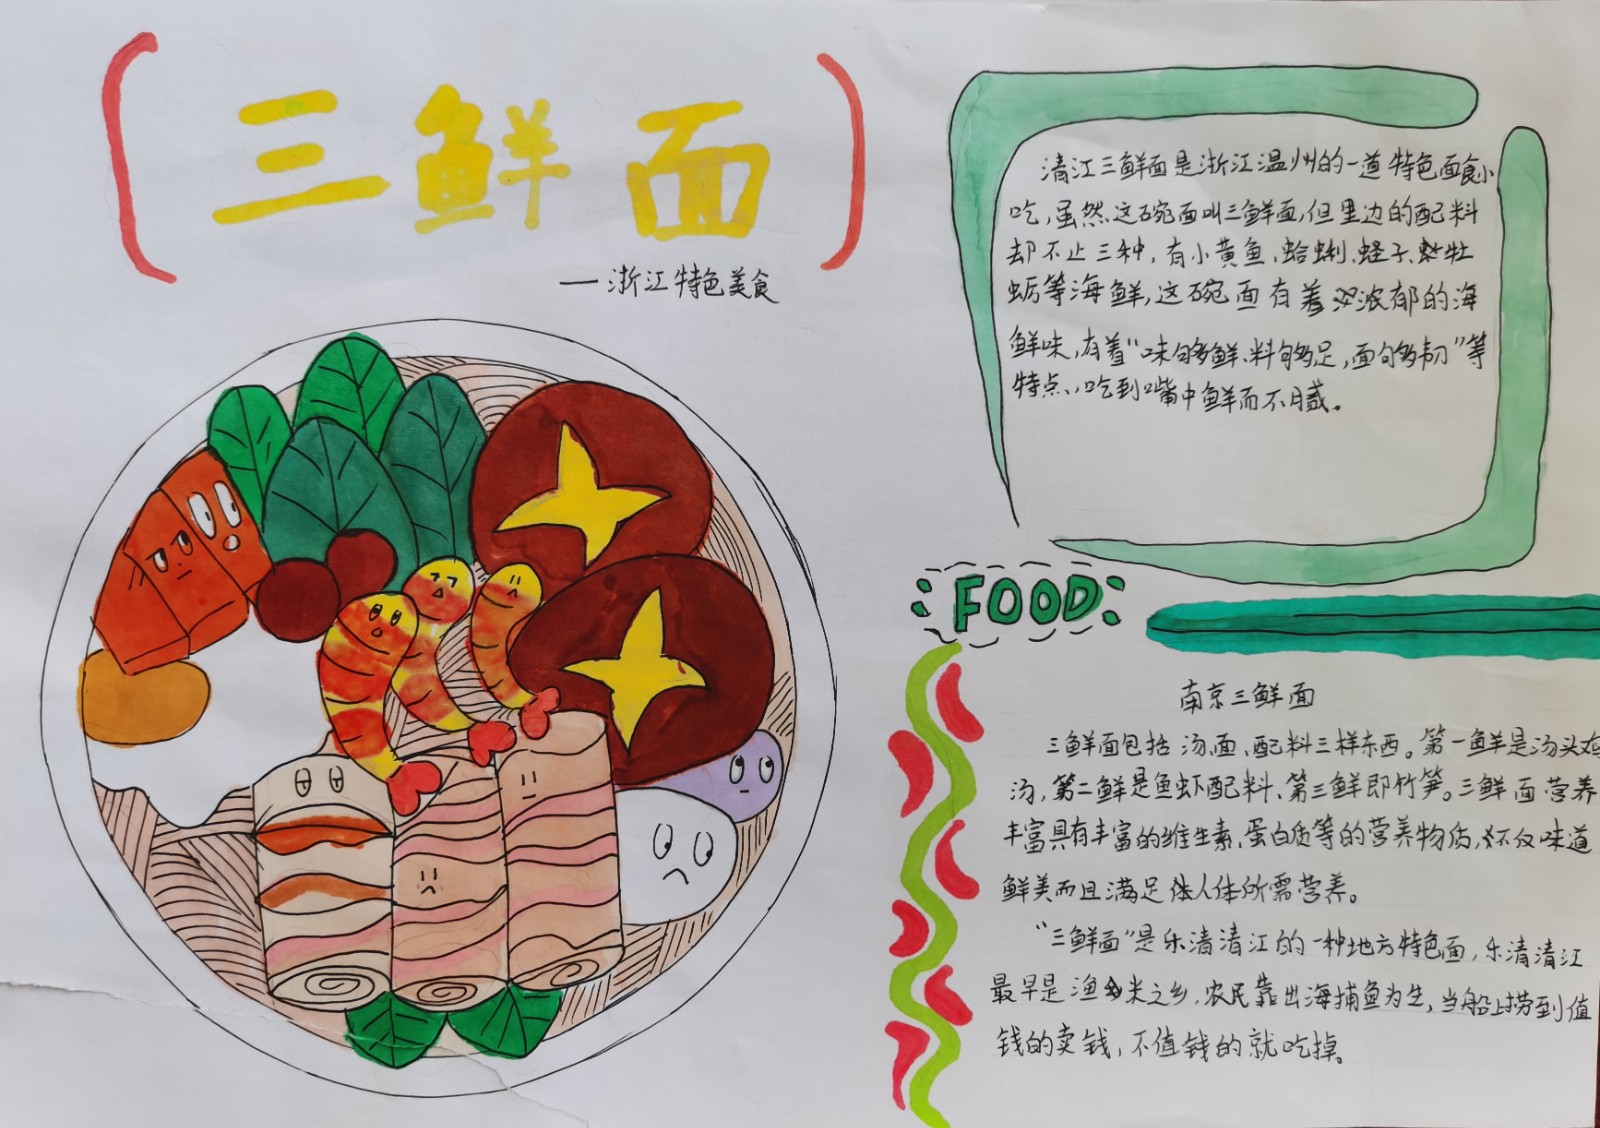 三鲜面
—浙江特色美食
清江三鲜面是浙江温州的一道特色面食小
吃,虽然这碗面叫三鲜面,但里边的配料
却不止三种,有小黄鱼、蛤蜊、蛏子、牡
蛎等海鲜,这碗面有着浓郁的海
鲜味,有着“味够鲜、料够足,面够韧”等
特点、吃到嘴中鲜而不腻。
FOOD
南京三鲜面
三鲜面包括汤、面、配料三样东西。第一鲜是汤头鸡
汤,第二鲜是鱼虾配料、第三鲜即竹笋。三鲜面营养
丰富具有丰富的维生素、蛋白质等的营养物质,不仅味道
鲜美而且满足人体所需营养。
“三鲜面”是乐清清江的一种地方特色面,乐清清江
最早是渔米之乡,农民靠出海捕鱼为生,当船上捞到值
钱的卖钱,不值钱的就吃掉。